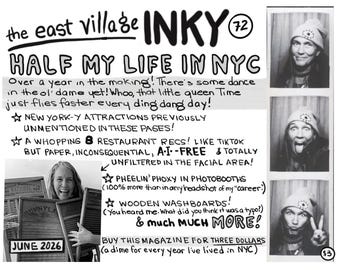 the east village INKY 72
HALF MY LIFE IN NYC
Over a year in the making! There's some dance
in the ol' dame yet! Whoo, that little queen Time
just flies faster every ding dang day!
☆ NEW YORK-Y ATTRACTIONS PREVIOUSLY
UNMENTIONED IN THESE PAGES!
☆ A WHOPPING 8 RESTAURANT RECS! LIKE TIKTOK
BUT PAPER, INCONSEQUENTIAL, A.I.-FREE & TOTALLY
UNFILTERED IN THE FACIAL AREA!
☆ PHEELIN' PHOXY IN PHOTOBOOTHS
(100% more than in any headshot of my "career")
☆ WOODEN WASHBOARDS!
(You heard me. What did you think it was a typo?)
& much much MORE!
JUNE 2026
BUY THIS MAGAZINE FOR THREE DOLLARS
(a dime for every year I've lived in NYC)
$3